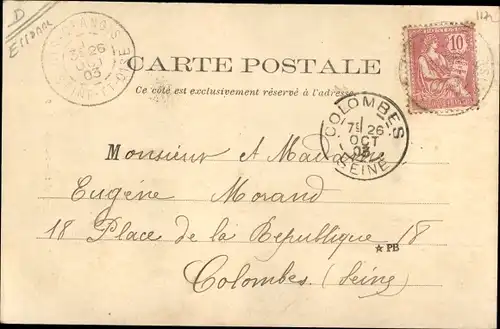 D
Essonne
26
OCT
03
SEINE-ET-OISE
10
CARTE POSTALE
Ce côté est exclusivement réservé à l'adresse
COLOMBES
7E 26
OCT
03
SEINE
Monsieur et Madame
Eugène Morand
18 Place de la Republique 18
★ PB
Colombes (Seine)